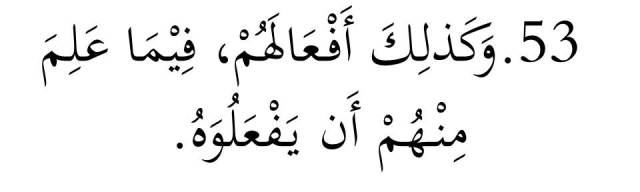 53.وَكَذلِكَ أَفْعَالَهُمْ، فِيْمَا عَلِمَ
مِنْهُمْ أَن يَفْعَلُوَهُ.